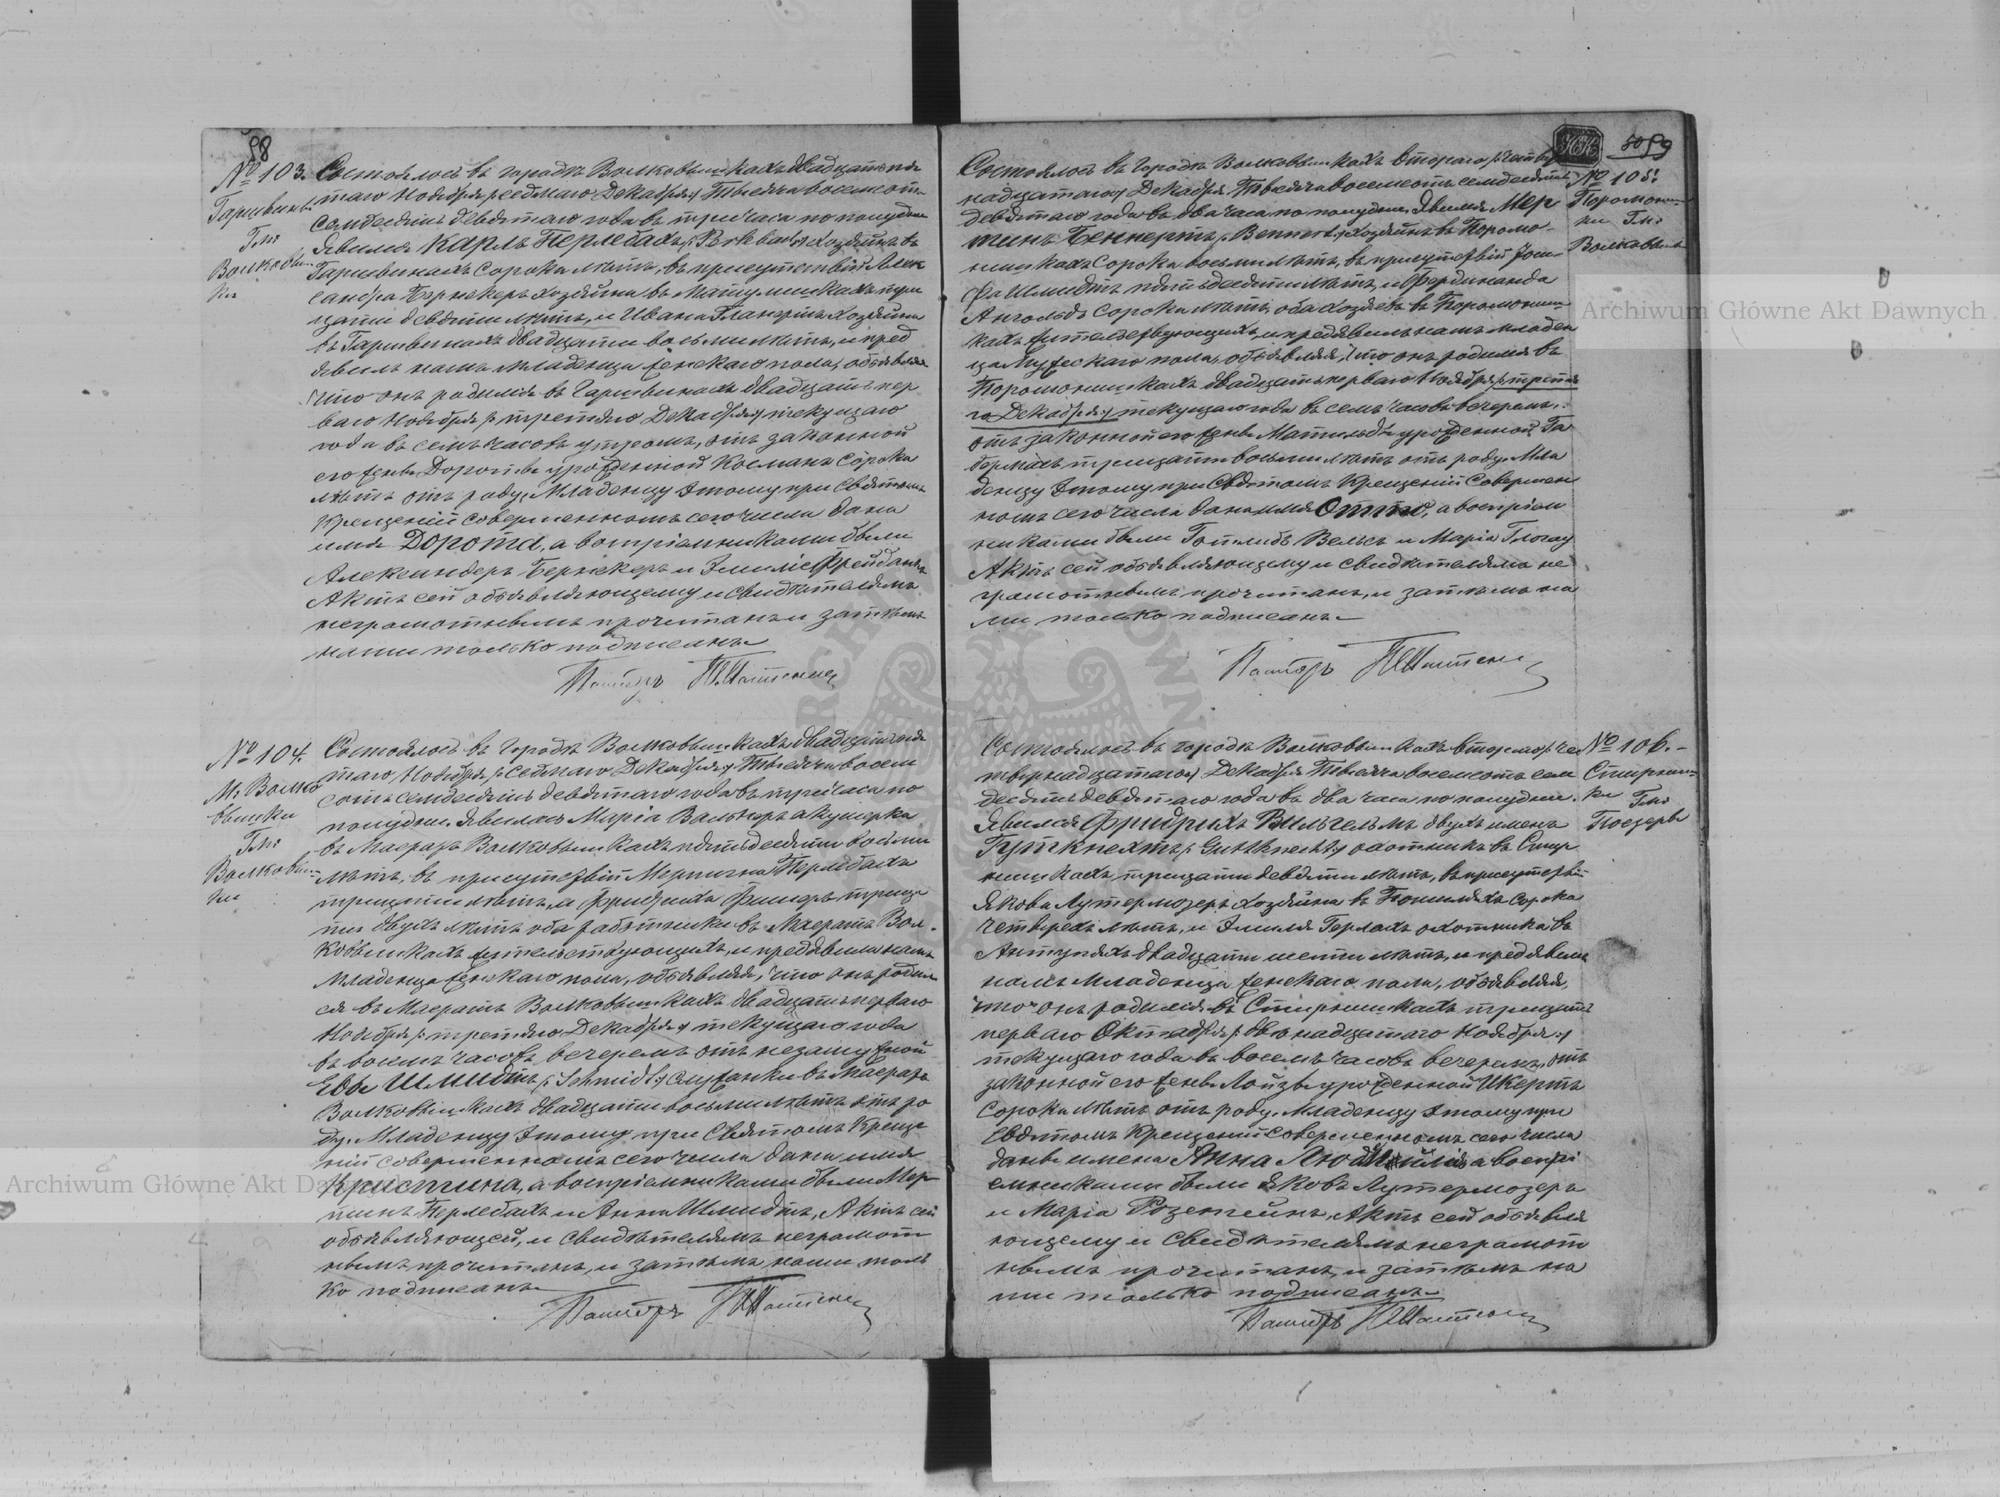 58
№ 103.
Гаршвин
Гмс
Волковыш
ки
Состоялось в городѣ Волковышкахъ двадцать пя
таго Ноября /: седмаго Декабря :/ Тысяча восемсотъ
семдесятъ девятаго года въ три часа по полудни
Явился Карлъ Перлебахъ /: Perlebach :/ хозяинъ въ
Гаршвинахъ сорока лѣтъ, въ присутствiи Алек
сандра Бернекеръ хозяина въ Матулишкахъ трид
цати девяти лѣтъ, и Ивана хозяина
въ Гаршвинахъ двадцати восьми лѣтъ, и пред
явилъ намъ младенца женскаго пола, объявляя
что онъ родился въ Гаршвинахъ двадцать пер
ваго Ноября /: третяго Декабря :/ текущаго
года въ семь часовъ утромъ, отъ законной
его жены Доротеы урожденной Косманъ сорока
лѣтъ отъ роду. Младенцу этому при Святомъ
Крещенiи совершенномъ сего числа дано
имя Дорота, а воспрiемниками были
Александеръ Бернекеръ и Эмилiе Фрейданкъ
Актъ сей объявляющему и свидѣтелямъ
неграмотнымъ прочитанъ и затѣмъ
нами только подписанъ
Пасторъ
№ 104.
М. Волко
вышки
Гмс
Волковыш
ки
Состоялось въ городѣ Волковышкахъ двадцать пя
таго Ноября /: седмаго Декабря :/ Тысяча восем
сотъ семдесятъ девятаго года въ три часа по
полудни. Явилась Марiа Вальнеръ акушерка
въ Маерахъ Волковышкахъ пятьдесяти восьми
лѣтъ, въ присутствiи Мертина Перлебахъ
тридцати лѣтъ, и Фридриха Фишеръ тридца
ти двухъ лѣтъ оба работники въ Маератъ Вол
ковышкахъ жительствующихъ, и предявила намъ
младенца женскаго пола, объявляя, что онъ родил
ся въ Маератъ Волковышкахъ двадцать перваго
Ноября /: третяго Декабря :/ текущаго года
въ восемь часовъ вечеромъ отъ незамужной
Евы Шмидтъ /: Schmidt :/ служанки въ Маерахъ
Волковышкахъ двадцати восьми лѣтъ отъ ро
ду. Младенцу этому при Святомъ Креще
нiи совершенномъ сего числа дано имя
Кристина, а воспрiемниками были Мер
тинъ Перлебахъ и Анна Шмидтъ, Актъ сей
объявляющей, и свидѣтелямъ неграмот
нымъ прочитанъ, и затѣмъ нами толь
ко подписанъ
Пасторъ
59
№ 105.
Поромониш
ки Гмс
Волковыш
Состоялось въ городѣ Волковышкахъ втораго /: четыр
надцатаго :/ Декабря Тысяча восемсотъ семдесятъ
девятаго года въ два часа по полудни. Явился Мер
тинъ Беннертъ /: Bennert :/ хозяинъ въ Поромо
нишкахъ сорока восьми лѣтъ, въ присутствiи Iоси
фа Шмидтъ пятьдесяти лѣтъ, и Фердинанда
Ангольдъ сорока лѣтъ, оба хозяевъ въ Поромониш
кахъ жительствующихъ, и предявилъ намъ младен
ца мужескаго пола, объявляя, что онъ родился въ
Поромонишкахъ двадцать перваго Ноября /: третя
го Декабря :/ текущаго года въ семь часовъ вечеромъ,
отъ законной его жены Матильды урожденной Га
берманъ тридцати восьми лѣтъ отъ роду. Мла
денцу этому при Святомъ Крещенiи совершен
номъ сего числа дано имя Отто, а воспрiем
никами были Готлибъ Вельсъ и Марiа Глогау
Актъ сей объявляющему и свидѣтелямъ не
грамотнымъ прочитанъ, и затѣмъ на
ми только подписанъ
Пасторъ
№ 106.
Стирниш
ки Гмс
Поезеры
Состоялось въ городѣ Волковышкахъ втораго /: че
тырнадцатаго :/ Декабря Тысяча восемсотъ сем
десятъ девятаго года въ два часа по полудни.
Явился Фридрихъ Вильгельмъ двухъ именъ
Гуткнехтъ /: Guthknecht :/ охотникъ въ Стир
нишкахъ тридцати девяти лѣтъ, въ присутствiи
Якова Лутермозеръ хозяина въ сорока
четырехъ лѣтъ, и Эмиля Герлахъ охотника въ
двадцати шести лѣтъ, и предявилъ
намъ младенца женскаго пола, объявляя,
что онъ родился въ Стирнишкахъ тридцать
перваго Октября /: двѣнадцатаго Ноября :/
текущаго года въ восемь часовъ вечеромъ, отъ
законной его жены Лоизы урожденной Икертъ
сорока лѣтъ отъ роду. Младенцу этому при
Святомъ Крещенiи совершенномъ сего числа
даны имена Анна а воспрi
емниками были Яковъ Лутермозеръ
и Марiа Розенейнъ, Актъ сей объявля
ющему и свидѣтелямъ неграмот
нымъ прочитанъ, и затѣмъ на
ми только подписанъ
Пасторъ
Archiwum Główne Akt Dawnych
Archiwum Główne Akt Dawnych